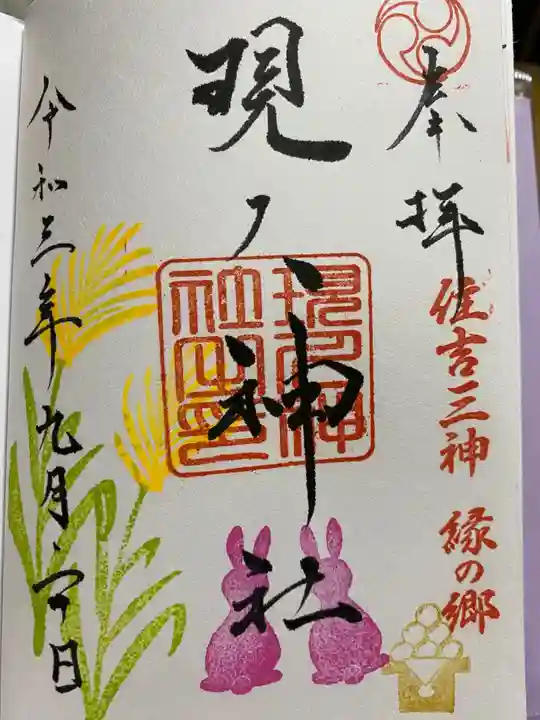 奉拝
住吉三神 縁の郷
現ノ神社
現ノ神社
令和三年九月六日